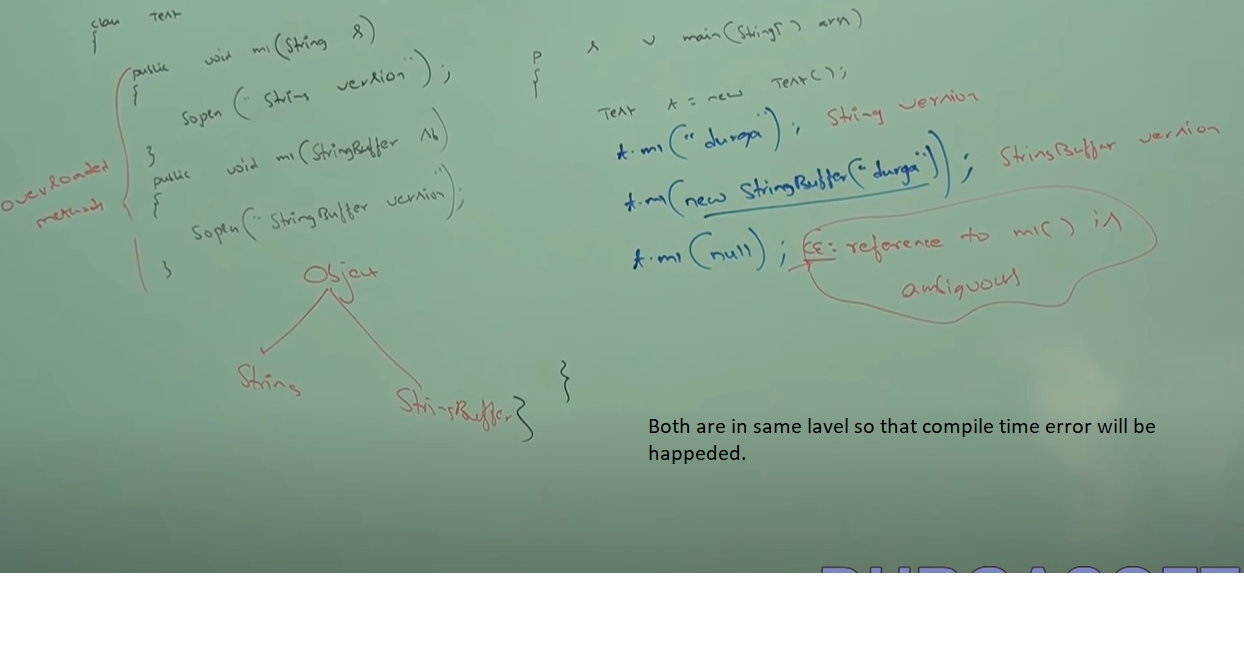 class Test
{
public void m1(String s)
{
Sopln("String version");
}
public void m1(StringBuffer sb)
{
Sopln("StringBuffer version");
}
overloaded
methods
Object
String
StringBuffer
}
p s v main(String[] args)
{
Test t = new Test();
t.m1("durga"); String version
t.m1(new StringBuffer("durga")); StringBuffer version
t.m1(null); CE: reference to m1() is
ambiguous
}
Both are in same lavel so that compile time error will be
happeded.